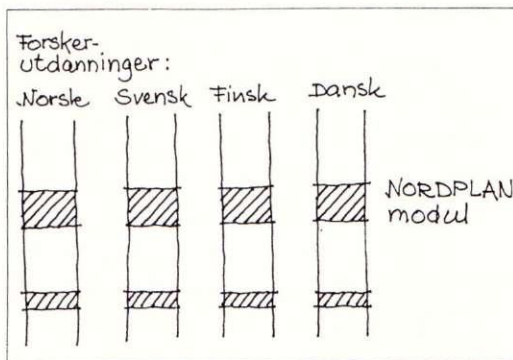 Forsker-
utdanninger:
Norsk Svensk Finsk Dansk
NORDPLAN
modul